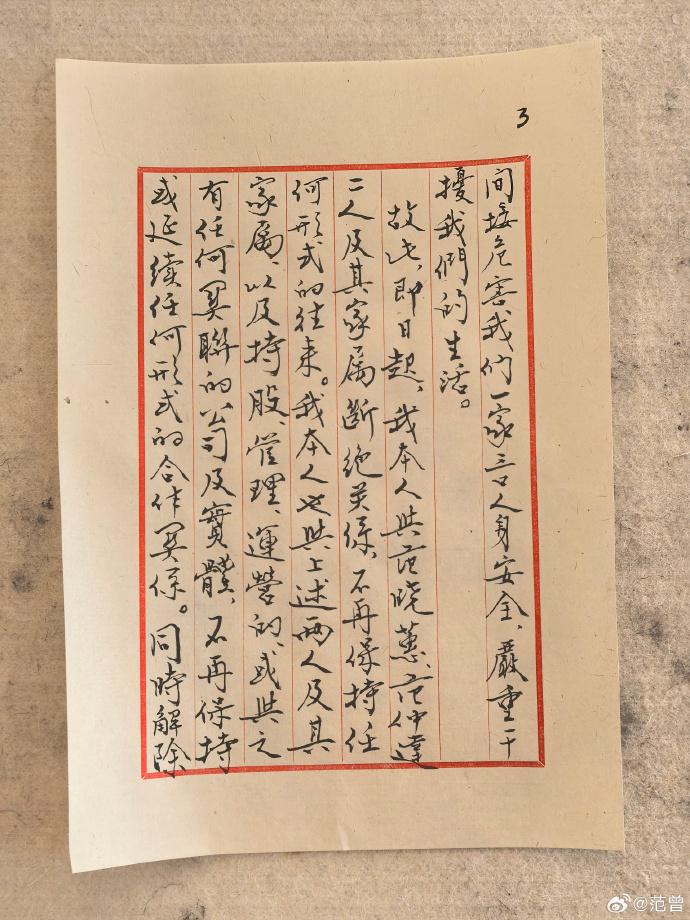 3
间接危害我们一家三口人身安全、嚴重干
擾我們的生活。
故此，即日起，我本人與范晓蕙、范仲達
二人及其家属斷绝关係，不再保持任
何形式的往来。我本人也與上述两人及其
家属、以及持股、管理、運營的、或與之
有任何関聯的公司及實體、不再保持
或延续任何形式的合作関係。同時解除
@范曾